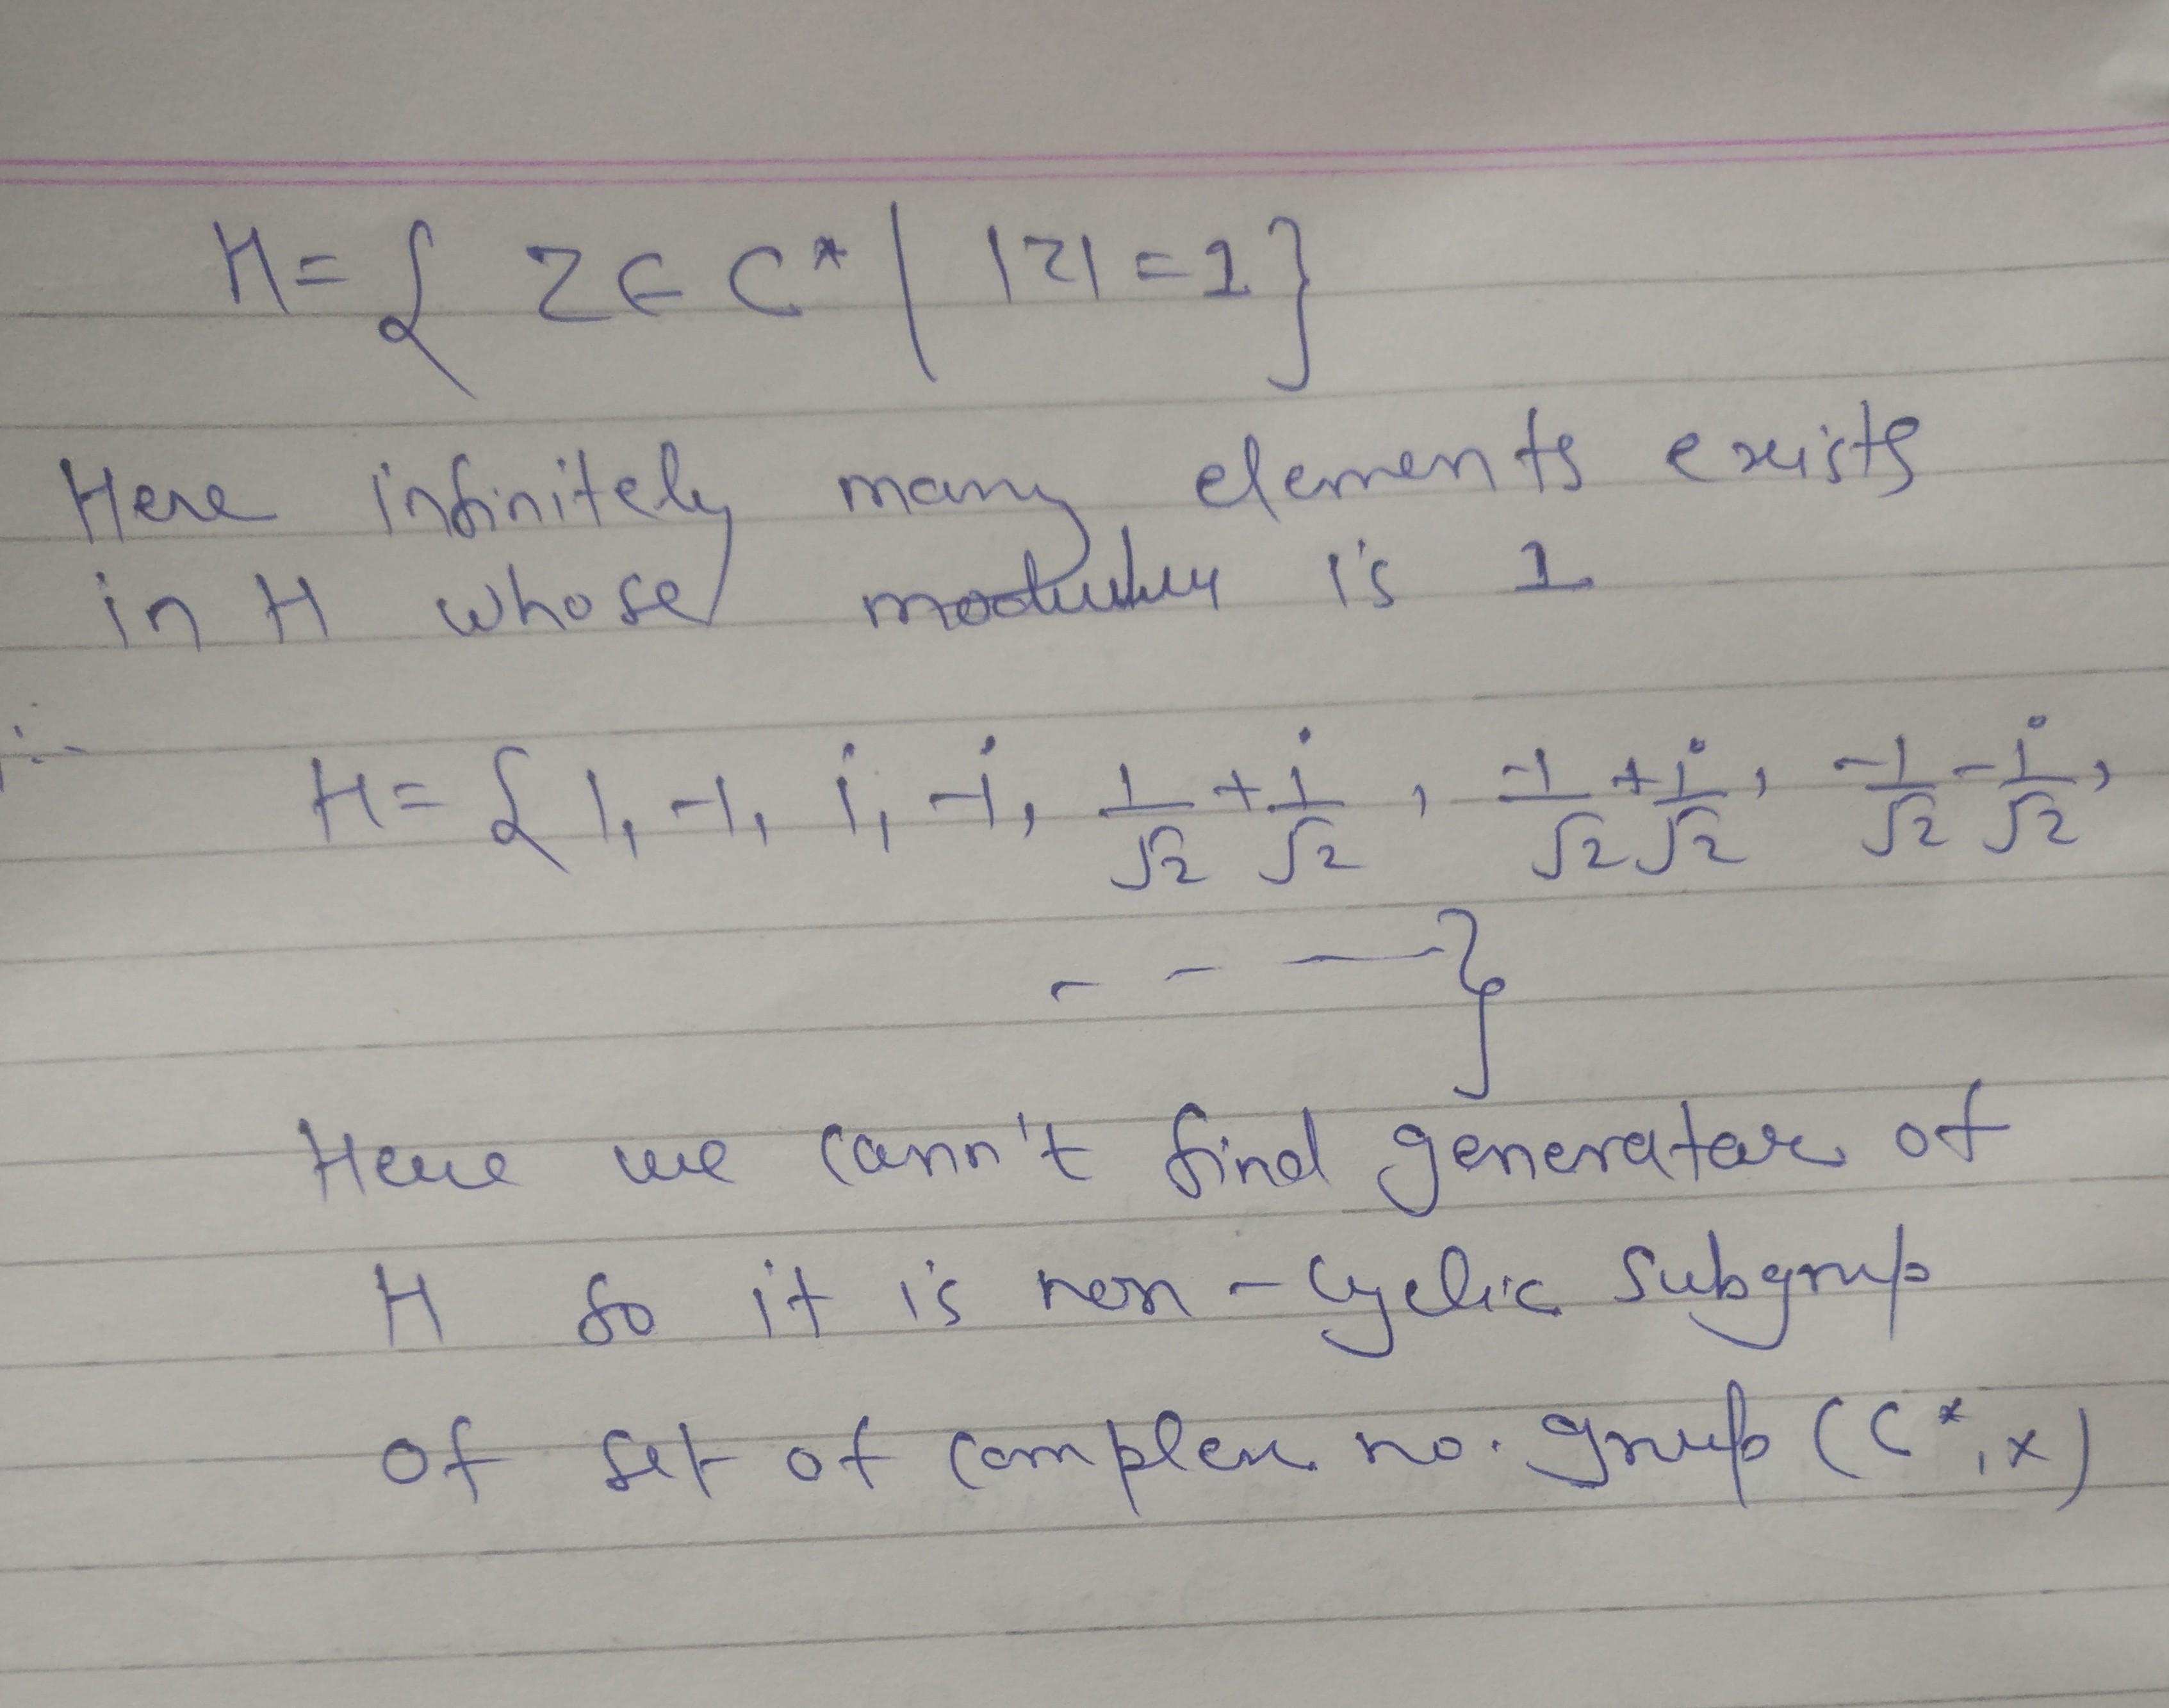 H = { Z ∈ C* | |z| = 1 }
Here infinitely many elements exists
in H whose modulus is 1
∴ H = { 1, -1, i, -i, 1/√2 + i/√2, -1/√2 + i/√2, -1/√2 - i/√2,
- - - - }
Here we cann't find generator of
H so it is non - cyclic subgroup
of set of complex no. group (C*, x)